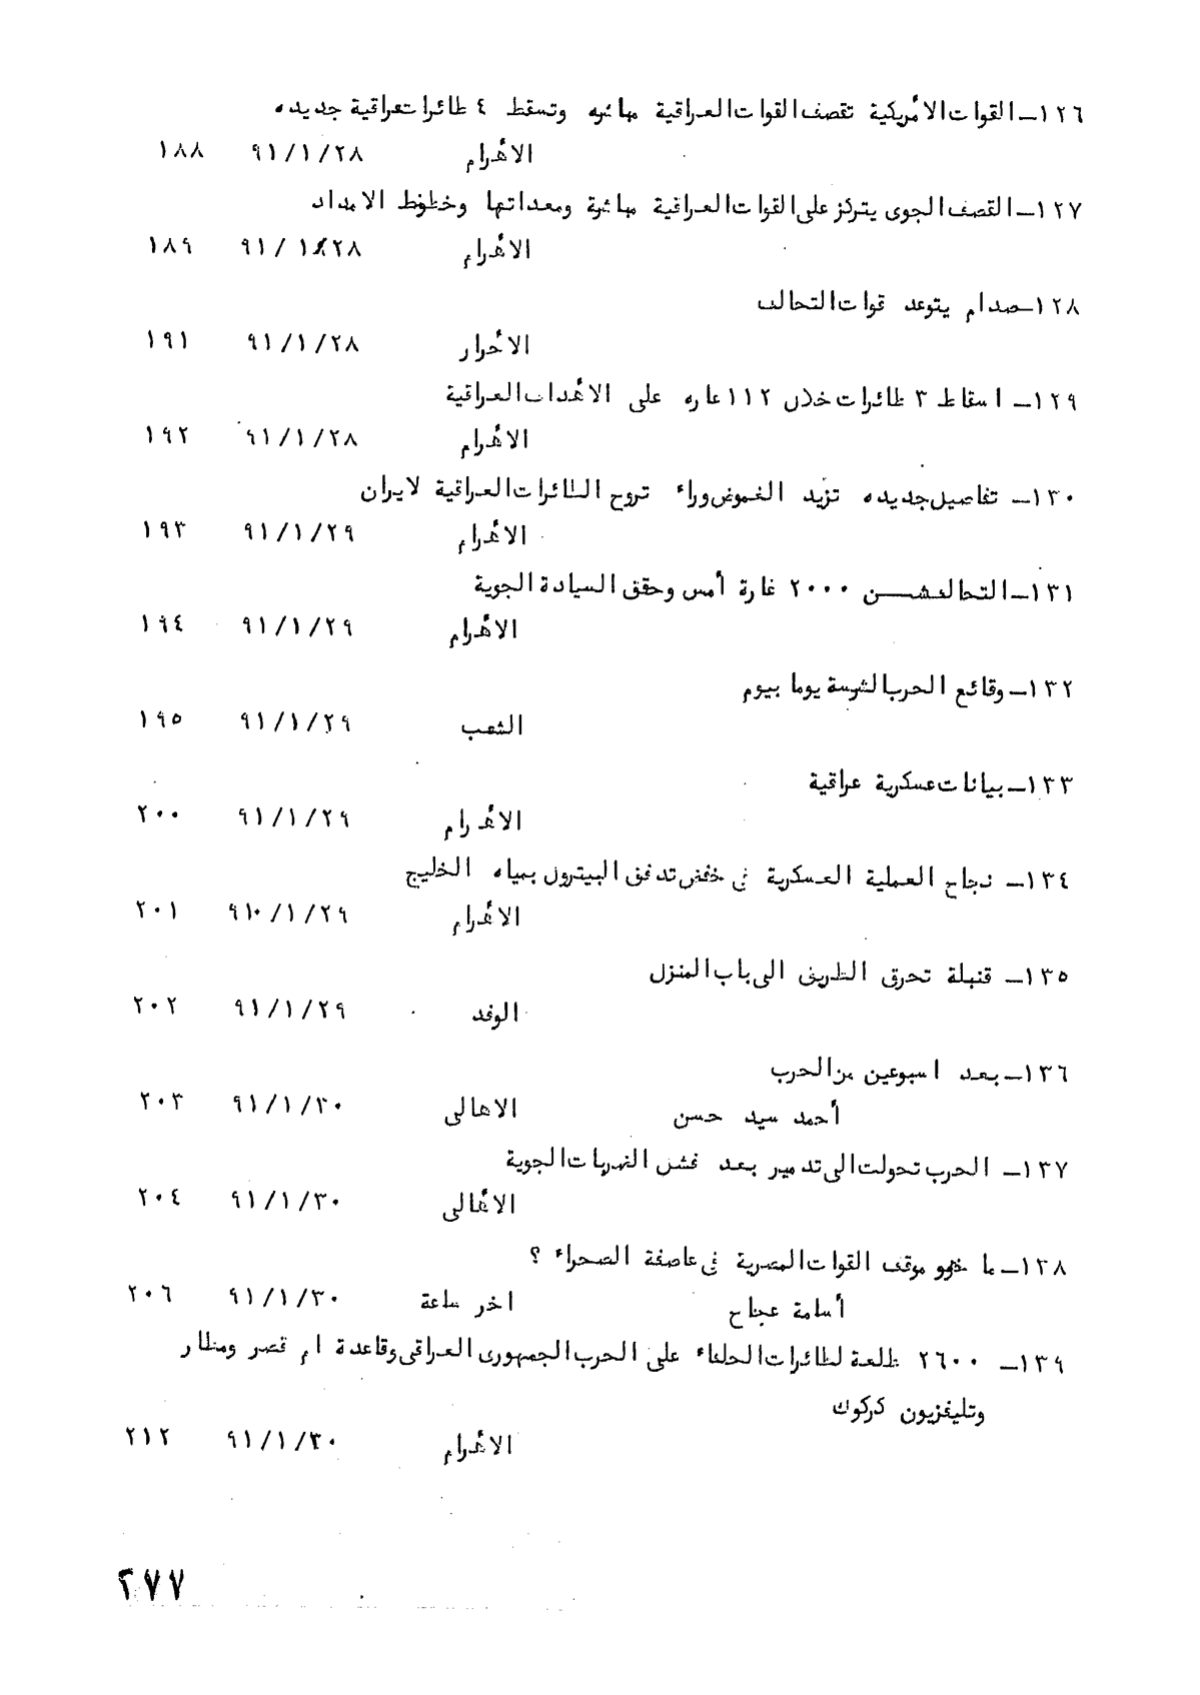 ١٢٦ــ القوات الأمريكية تقصف القوات العراقية مباشره وتسقط ٤ طائرات عراقية جديده
الأهرام ٩١/١/٢٨ ١٨٨
١٢٧ــ القصف الجوى يتركز على القوات العراقية مباشرة ومعداتها وخطوط الامداد
الأهرام ٩١/١/٢٨ ١٨٩
١٢٨ــ صدام يتوعد قوات التحالف
الأحرار ٩١/١/٢٨ ١٩١
١٢٩ــ اسقاط ٣ طائرات خلال ١١٢ غاره على الأهداف العراقية
الأهرام ٩١/١/٢٨ ١٩٢
١٣٠ــ تفاصيل جديده تزيد الغموض وراء تروح الطائرات العراقية لايران
الأهرام ٩١/١/٢٩ ١٩٣
١٣١ــ التحالف شــن ٢٠٠٠ غارة أمس وحقق السيادة الجوية
الأهرام ٩١/١/٢٩ ١٩٤
١٣٢ــ وقائع الحرب الشرسة يوما بيوم
الشعب ٩١/١/٢٩ ١٩٥
١٣٣ــ بيانات عسكرية عراقية
الأهرام ٩١/١/٢٩ ٢٠٠
١٣٤ــ نجاح العملية العسكرية فى خفض تدفق البيترول بمياه الخليج
الأهرام ٩١/١/٢٩ ٢٠١
١٣٥ــ قنبلة تحرق الطريق الى باب المنزل
الوفد ٩١/١/٢٩ ٢٠٢
١٣٦ــ بعد اسبوعين من الحرب
أحمد سيد حسن الاهالى ٩١/١/٣٠ ٢٠٣
١٣٧ــ الحرب تحولت الى تدمير بعد فشل الضربات الجوية
الأهالى ٩١/١/٣٠ ٢٠٤
١٣٨ــ ما هو موقف القوات المصرية فى عاصفة الصحراء ؟
أسامة عجاج اخر ساعة ٩١/١/٣٠ ٢٠٦
١٣٩ــ ٢٦٠٠ طلعة لطائرات الحلفاء على الحرب الجمهورى العراقى وقاعدة ام قصر ومطار
وتليفزيون كركوك
الأهرام ٩١/١/٣٠ ٢١٢
٢٧٧